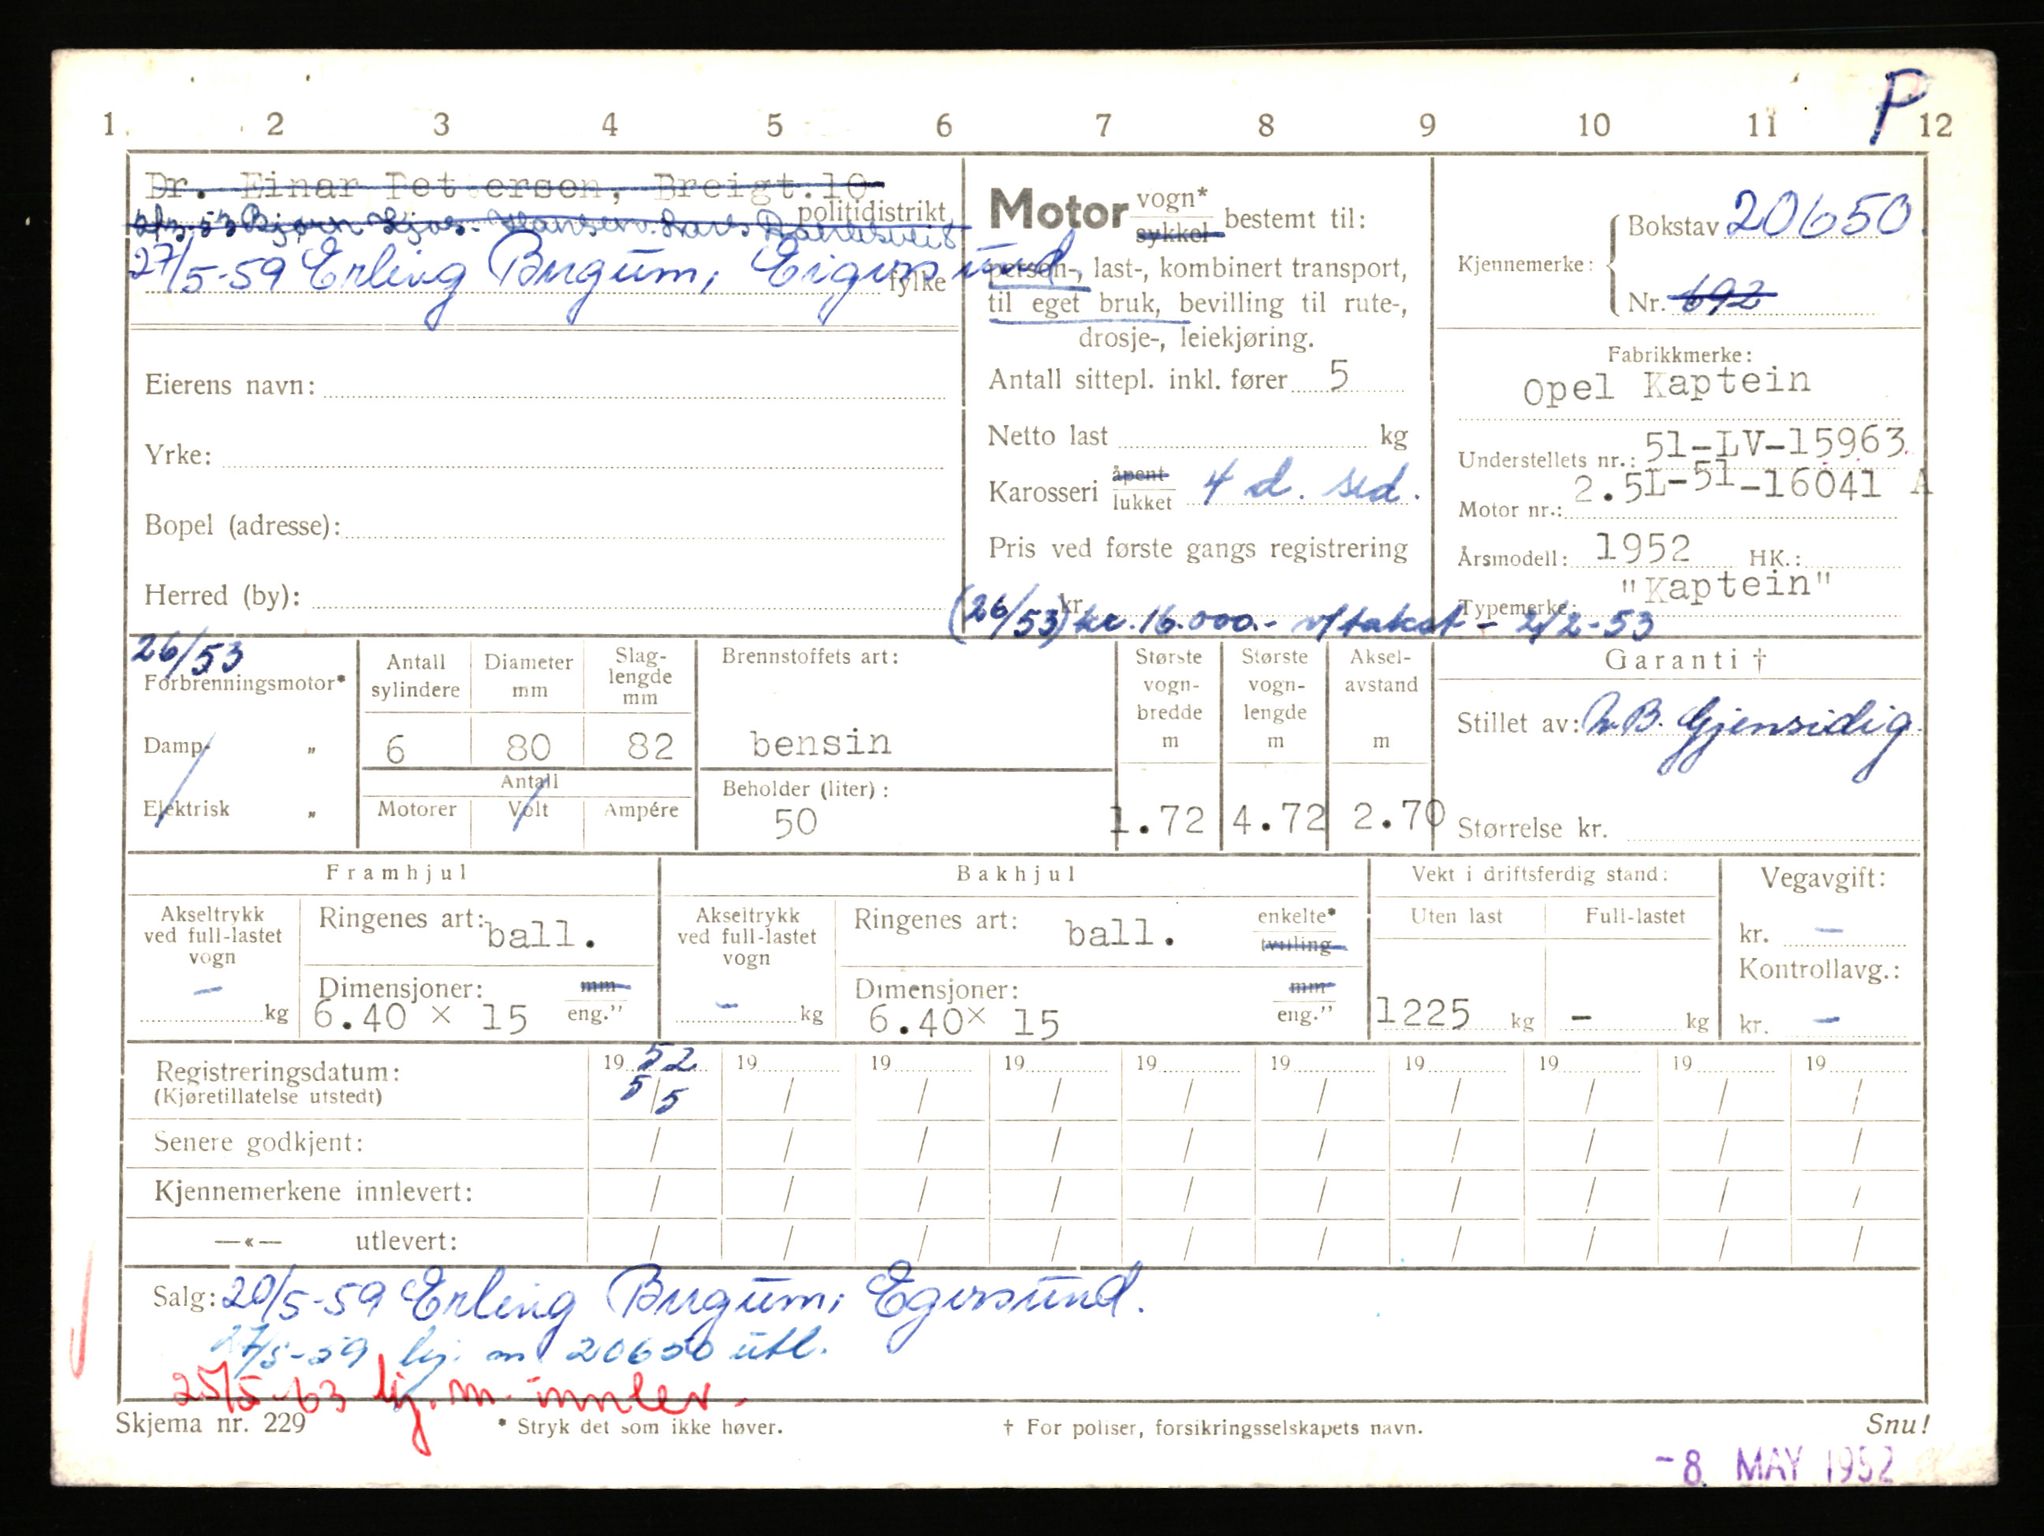 P
1 2 3 4 5 6 7 8 9 10 11 12
Dr. Einar Pettersen, Breigt.10
politidistrikt
27/5-59 Erling Birgum, Eigersund
fylke
Eierens navn:
Yrke:
Bopel (adresse):
Herred (by):
Motor vogn* sykkel bestemt til:
person-, last-, kombinert transport,
til eget bruk, bevilling til rute-,
drosje-, leiekjøring.
Antall sittepl. inkl. fører 5
Netto last kg
Karosseri åpent lukket 4 d. sed.
Pris ved første gangs registrering
kr.
(26/53) kr. 16.000.- v/takst - 2/2-53
Kjennemerke: Bokstav 20650
Nr. 692
Fabrikkmerke:
Opel Kaptein
Understellets nr.: 51-LV-15963
Motor nr.: 2.5L-51-16041 A
Årsmodell: 1952 HK.:
Typemerke: "Kaptein"
26/53
Forbrenningsmotor*
Damp- "
Elektrisk "
Antall sylindere 6
Diameter mm 80
Slag-lengde mm 82
Antall
Motorer Volt Ampére
Brennstoffets art:
bensin
Beholder (liter):
50
Største vogn-bredde m 1.72
Største vogn-lengde m 4.72
Aksel-avstand m 2.70
Garanti †
Stillet av: Gjensidig.
Størrelse kr.
Framhjul
Akseltrykk ved full-lastet vogn
- kg
Ringenes art: ball.
Dimensjoner: mm eng."
6.40 × 15
Bakhjul
Akseltrykk ved full-lastet vogn
- kg
Ringenes art: ball. enkelte* tvilling
Dimensjoner: mm eng."
6.40× 15
Vekt i driftsferdig stand:
Uten last Full-lastet
1225 kg - kg
Vegavgift:
kr. -
Kontrollavg.:
kr. -
Registreringsdatum: 19 52 19 19 19 19 19 19 19 19 19
(Kjøretillatelse utstedt) 5/5 / / / / / / / / /
Senere godkjent: / / / / / / / / / /
Kjennemerkene innlevert: / / / / / / / / / /
—«— utlevert: / / / / / / / / / /
Salg: 20/5-59 Erling Birgum, Egersund.
27/5-59 kj. m 20650 utl.
25/5-63 kj. m. innlev.
Skjema nr. 229 * Stryk det som ikke høver. † For poliser, forsikringsselskapets navn. Snu!
-8. MAY 1952